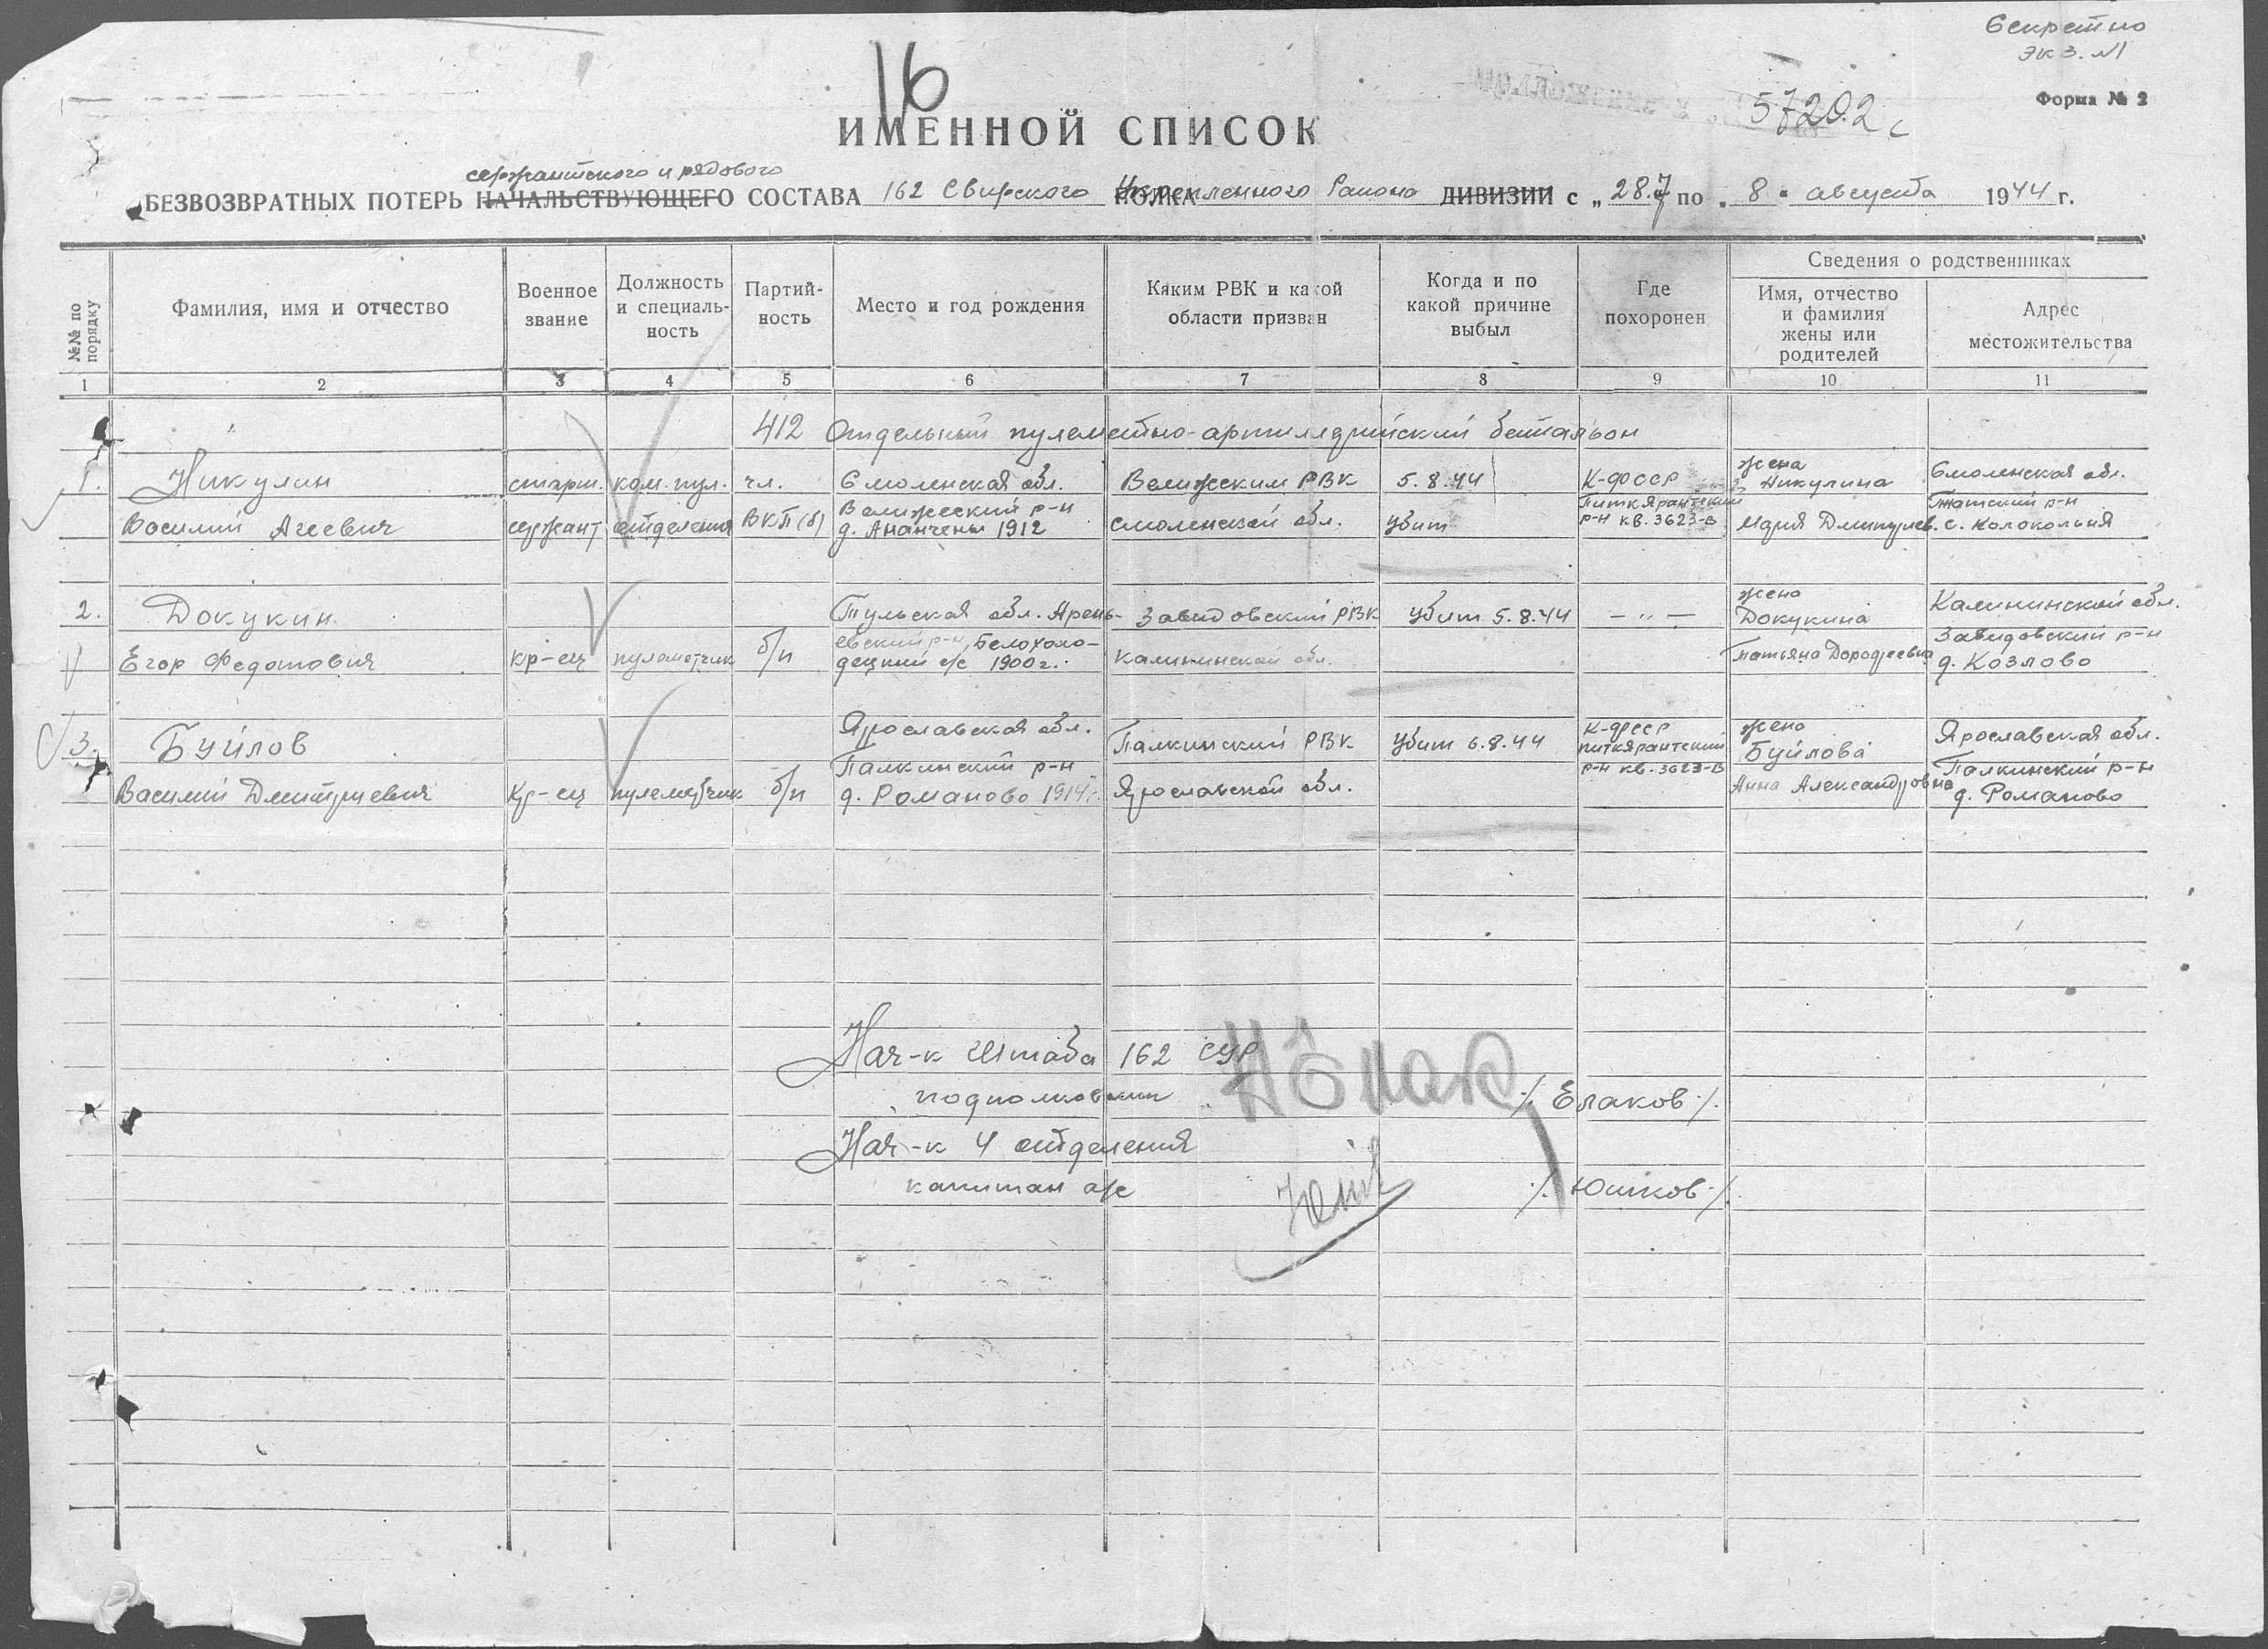 Секретно
экз. №1
16
57202с
Форма № 2
ИМЕННОЙ СПИСОК
сержантского и рядового
БЕЗВОЗВРАТНЫХ ПОТЕРЬ НАЧАЛЬСТВУЮЩЕГО СОСТАВА 162 Свирского ПОЛКА Укрепленного Района ДИВИЗИИ с „ 28.7 по „ 8 " августа 1944 г.
№№ по порядку
Фамилия, имя и отчество
Военное
звание
Должность
и специаль-
ность
Партий-
ность
Место и год рождения
Каким РВК и какой
области призван
Когда и по
какой причине
выбыл
Где
похоронен
Сведения о родственниках
Имя, отчество
и фамилия
жены или
родителей
Адрес
местожительства
1 2 3 4 5 6 7 8 9 10 11
412 Отдельный пулеметно-артиллерийский батальон
1.
Никулин
Василий Агеевич
старш.
сержант
ком. пул.
отделения
чл.
ВКП(б)
Смоленская обл.
Велижский р-н
д. Ананчены 1912
Велижским РВК
Смоленской обл.
5.8.44
убит
К-фсср
Питкярантский
р-н кв. 3623-В
жена
Никулина
Мария Дмитриев.
Смоленская обл.
с. Колокольня
2.
Докукин
Егор Федотович
кр-ец
пулеметчик
б/п
Тульская обл. Арень-
евский р-н, Белоколо-
децкий с/с 1900г.
Завидовский РВК
Калининской обл.
Убит 5.8.44
— „ —
жена
Докукина
Татьяна Дорофеевна
Калининской обл.
Завидовский р-н
д. Козлово
3.
Буйлов
Василий Дмитриевич
Кр-ец
пулеметчик
б/п
Ярославская обл.
Палкинский р-н
д. Романово 1914г.
Палкинский РВК
Ярославской обл.
Убит 6.8.44
К-фсср
питкярантский
р-н кв. 3623-В
жена
Буйлова
Анна Александровна
Ярославская обл.
Палкинский р-н
д. Романово
Нач-к Штаба 162 СУР
подполковник /Елаков/
Нач-к 4 отделения
капитан а/с /Юшков/